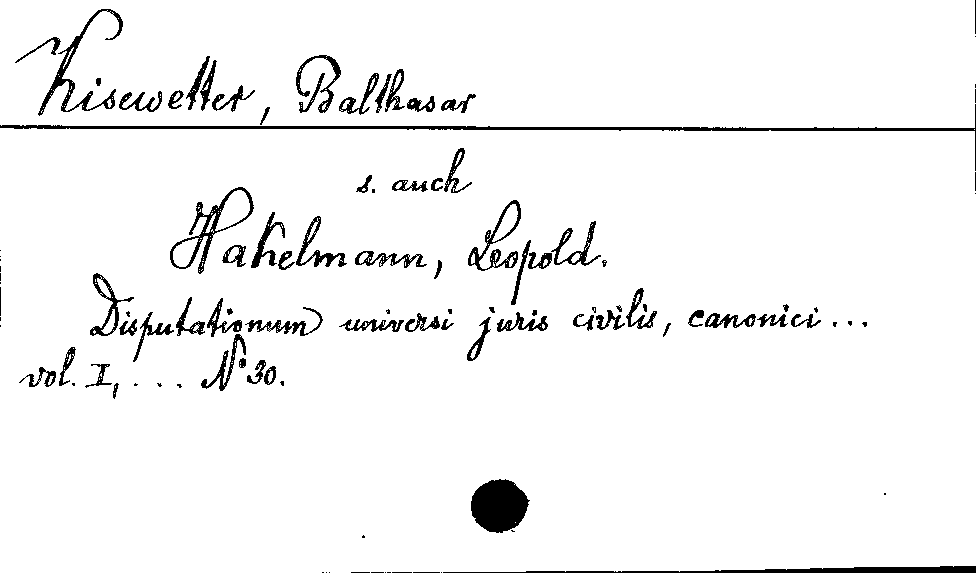 Kisewetter, Balthasar
s. auch
Hakelmann, Leopold.
Disputationum universi juris civilis, canonici ...
vol. I, . . . N° 30.